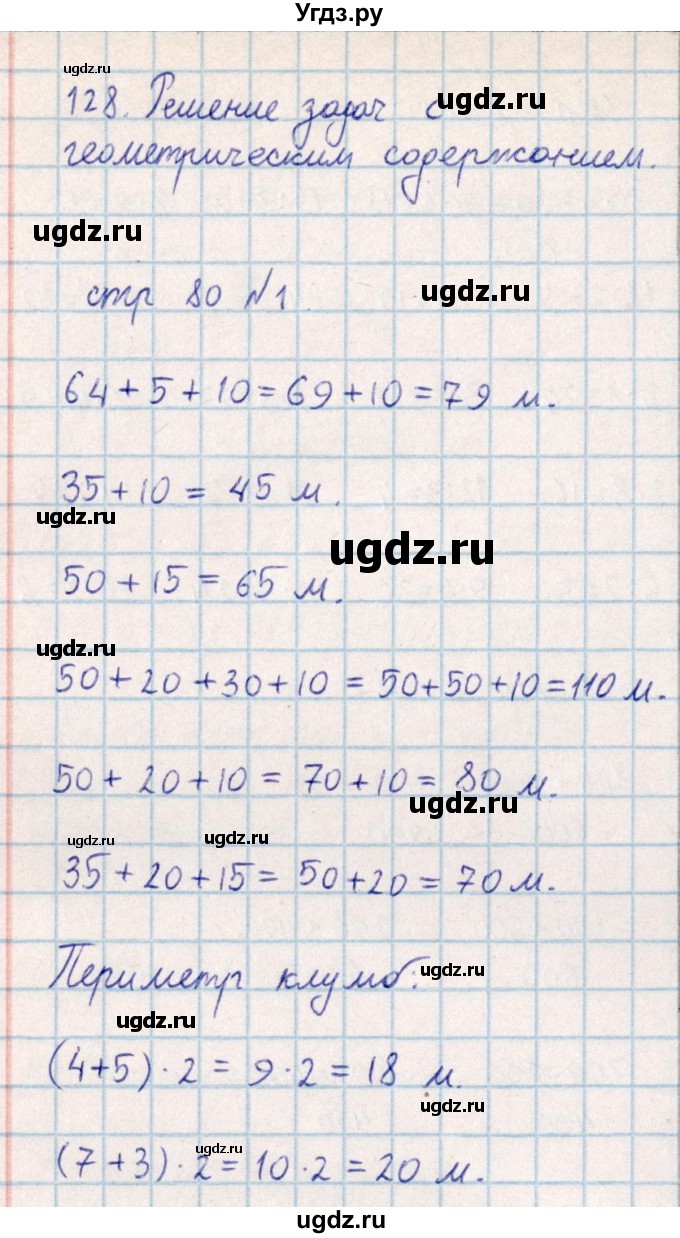 Угдз.ру
ugdz.ru
128. Решение задач с ugdz.ru
геометрическим содержанием.
ugdz.ru
стр 80 №1 ugdz.ru
64 + 5 + 10 = 69 + 10 = 79 м.
35 + 10 = 45 м.
ugdz.ru
ugdz.ru
50 + 15 = 65 м.
ugdz.ru
50 + 20 + 30 + 10 = 50 + 50 + 10 = 110 м.
50 + 20 + 10 = 70 + 10 = 80 м.
ugdz.ru
ugdz.ru ugdz.ru
35 + 20 + 15 = 50 + 20 = 70 м.
Периметр клумб:
ugdz.ru
ugdz.ru
(4+5) · 2 = 9 · 2 = 18 м.
ugdz.ru
ugdz.ru
(7 + 3) · 2 = 10 · 2 = 20 м.
ugdz.ru